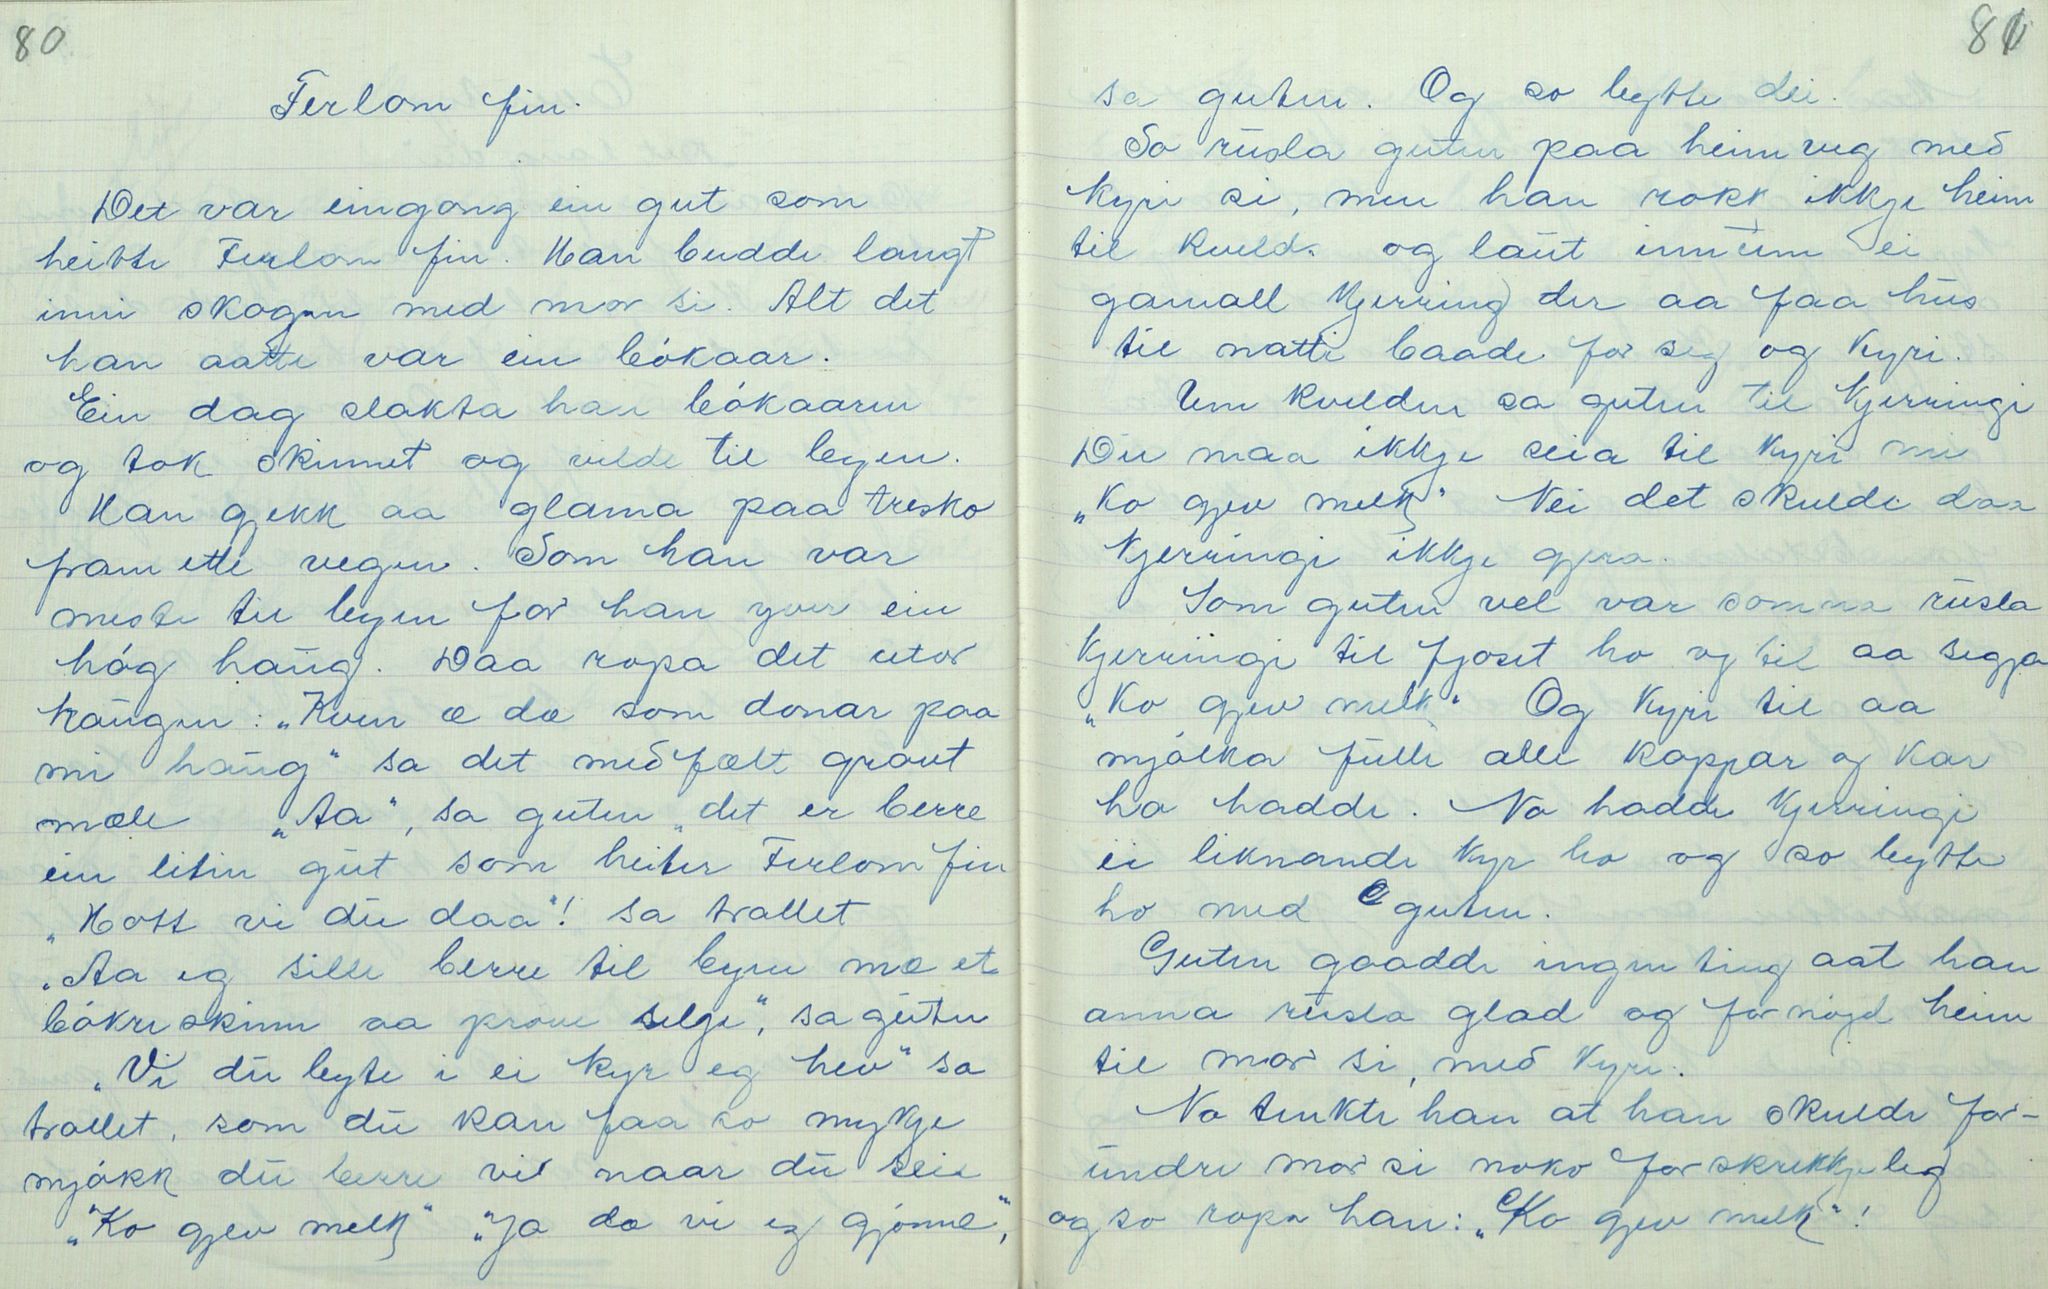 80
Ferlom fin.
Det var eingong ein gut som
heitte Ferlom fin. Han budde langt
inni skogen med mor si. Alt det
han aatte var ein bókaar.
Ein dag slakta han bókaaren
og tok skinnet og vilde til byen.
Han gjekk aa glama paa tresko
fram ette vegen. Som han var
meste til byen for han yver ein
hóg haüg. Daa ropa det utor
haügen: „Kven æ dæ som donar paa
mi haüg" sa det med fælt graut
mæle „Aa", sa guten „det er berre
ein liten gut som heiter Ferlom fin
„Kott vi dü daa"! sa trollet
„Aa eg sille berre til byen mæ et
bókreskinn aa prøve selge", sa güten
„Vi dü byte i ei kyr eg hev" sa
trollet, som dü kan faa so mykje
mjókk dü berre vil naar dü seie
„Ko gjev melk" „Ja dæ vi eg gjónne",
81
sa guten. Og so bytte dei.
So rüsla guten paa heimveg med
kyri si, men han rokk ikkje heim
til kvelds og laüt innüm ei
gamall kjerring der aa faa hüs
til natti baade for seg og kyri.
Um kvelden sa guten til kjerringi
Dü maa ikkje seia til kyri mi
„Ko gjev melk" Nei det skulde daa
kjerringi ikkje gjera.
Som guten vel var somna rüsla
kjerringi til fjoset ho og til aa segja
„Ko gjev melk" Og kyri til aa
mjólka fülle alle koppar og kar
ho hadde. No hadde kjerringi
ei liknande kyr ho og so bytte
ho med guten.
Guten gaadde ingen ting aat han
anna rüsla glad og fornójd heim
til mor si, med kyri.
No tenkte han at han skulde for-
ündre mor si noko forskrekkjeleg
og so ropa han: „Ko gjev melk"!